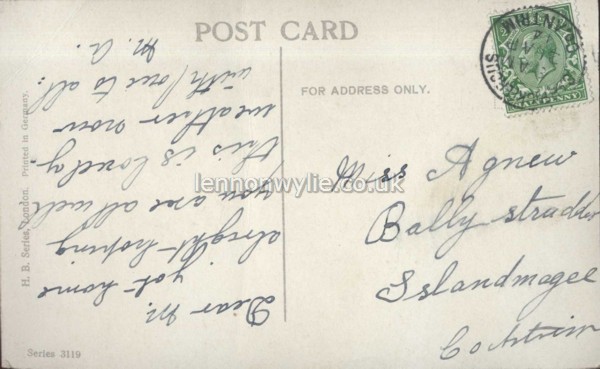 POST CARD
FOR ADDRESS ONLY.
Miss Agnew
Ballystradder
Islandmagee
Co Antrim
Dear M.
got home
alright hoping
you are all well
this is lovely
weather now
with love to all.
M. A.
H. B. Series, London. Printed in Germany.
Series 3119
ANTRIM
lennonwylie.co.uk